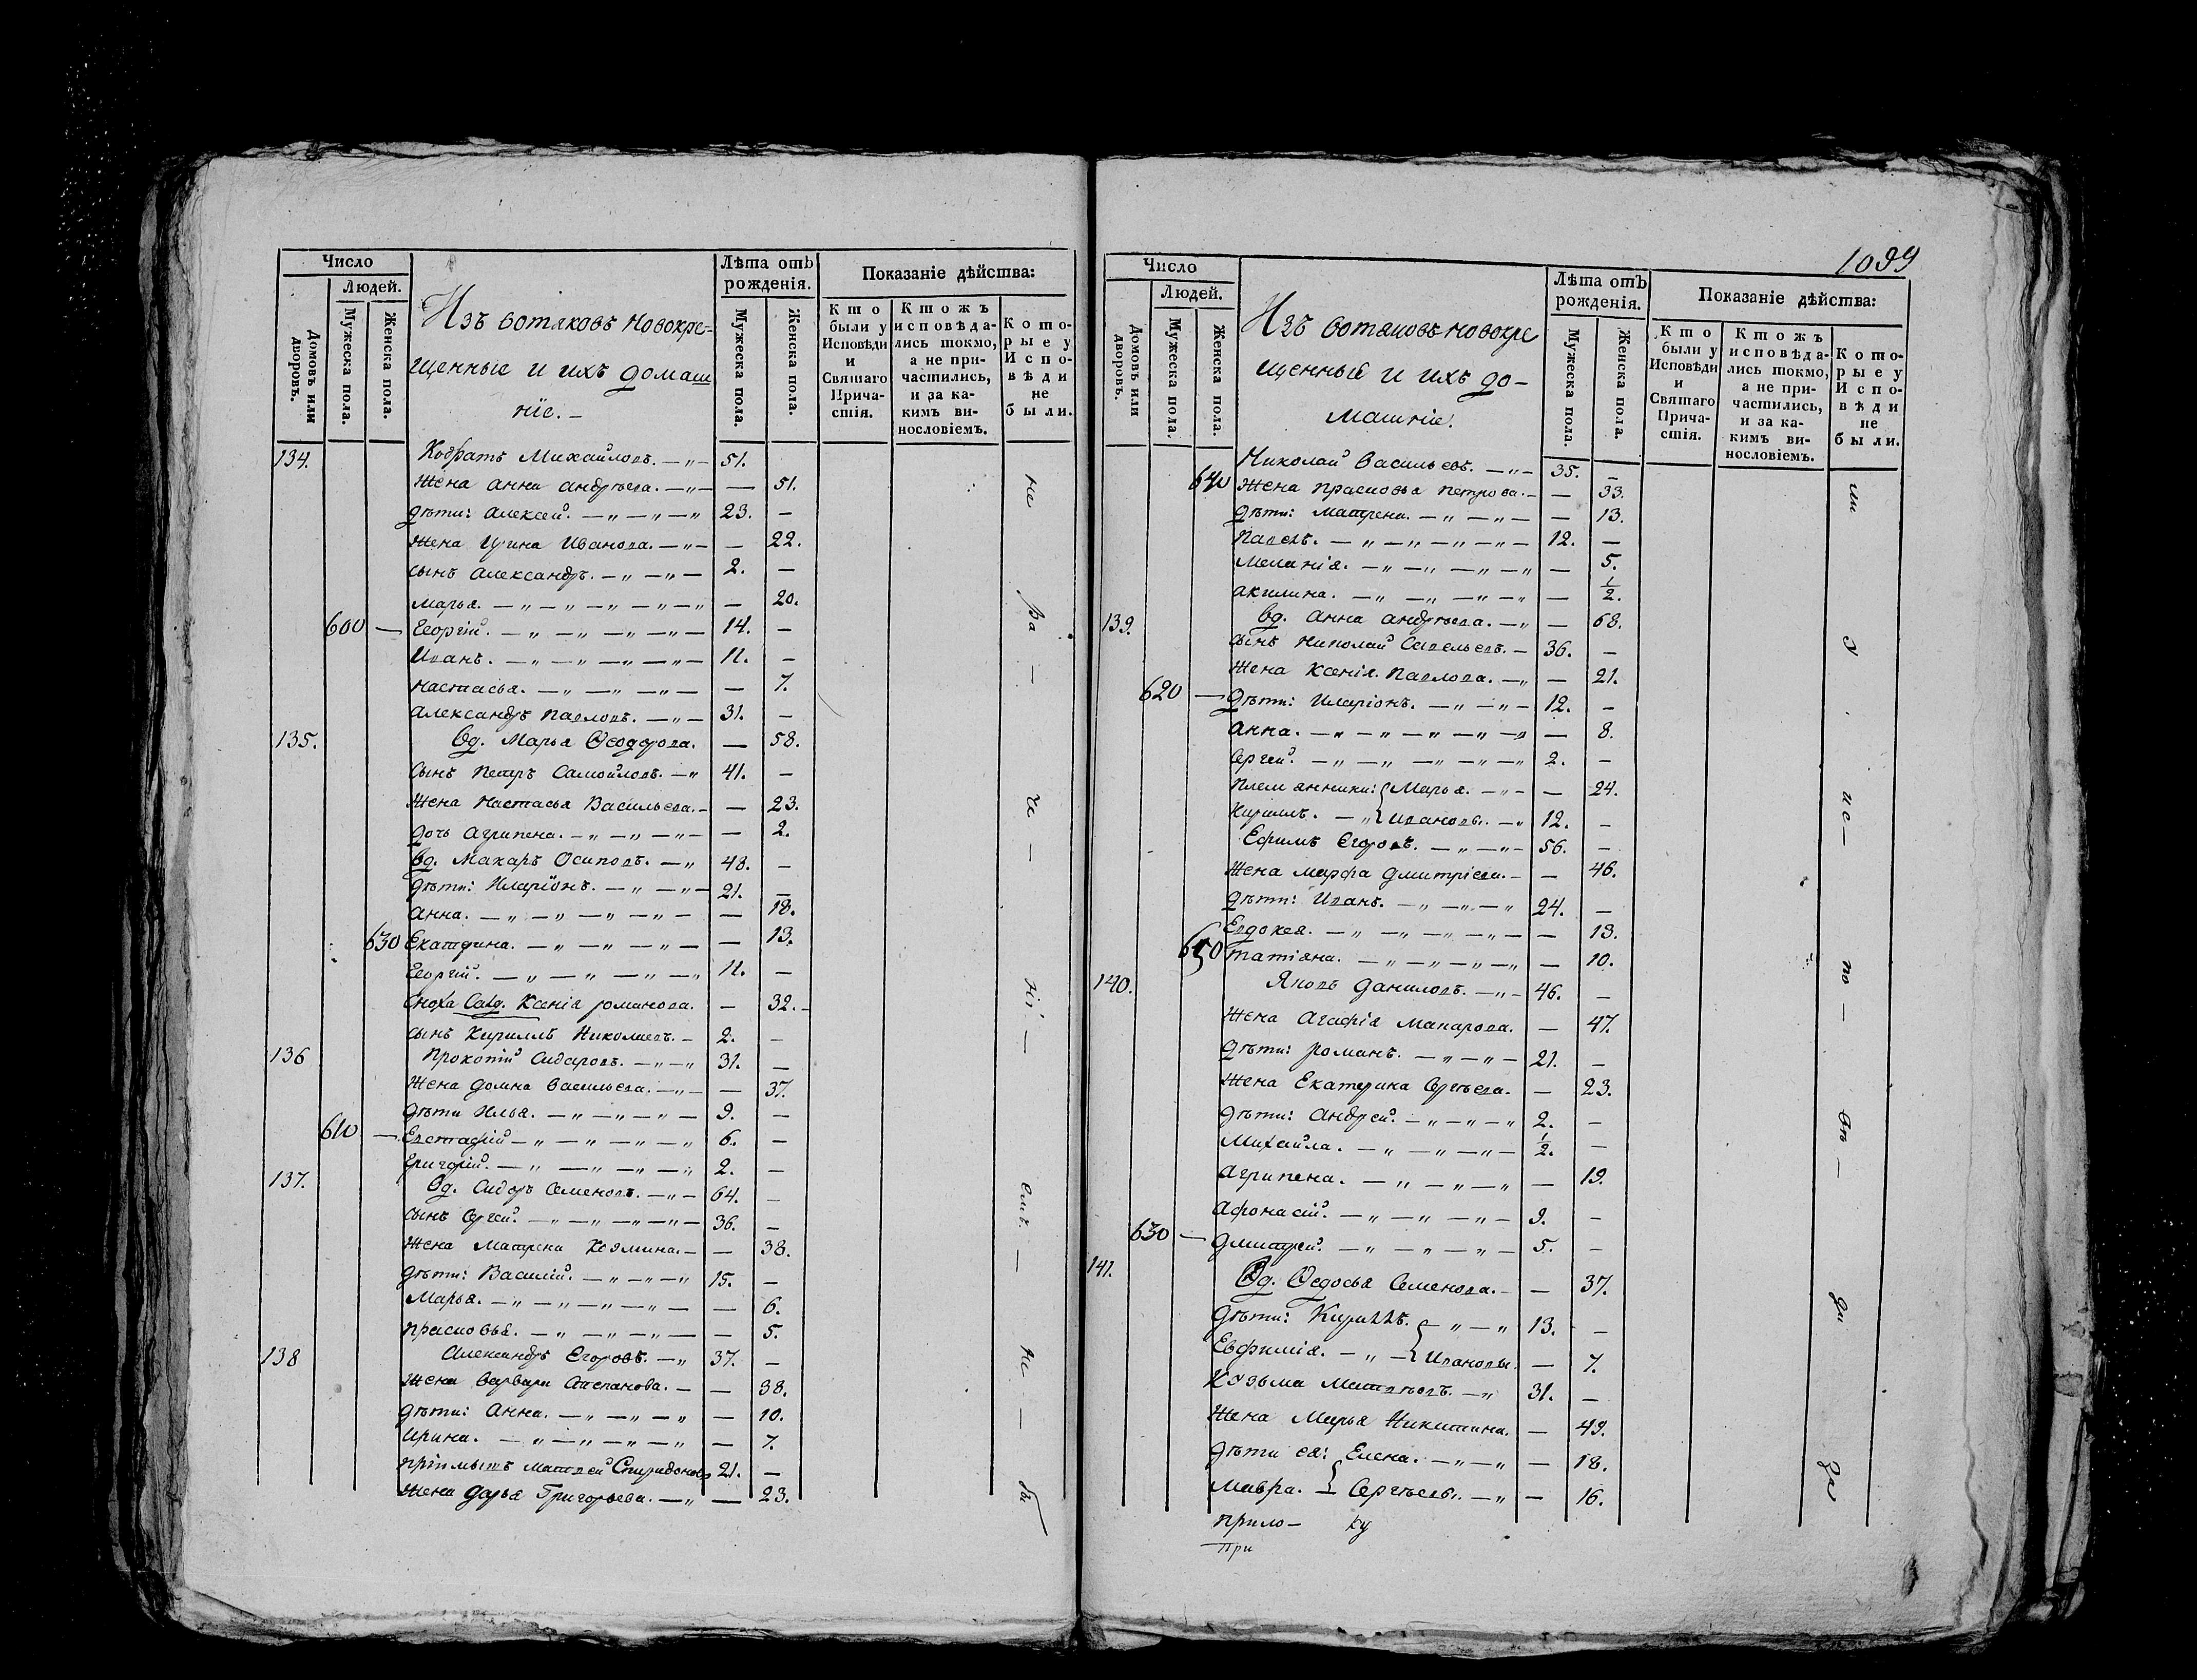 Число
Людей.
Домовъ или дворовъ.
Мужеска пола.
Женска пола.
Изъ вотяковъ новокре-
щенные и ихъ домаш
ніе. —
Лѣта отъ рожденія.
Мужеска пола.
Женска пола.
Показаніе дѣйства:
Кто были у Исповѣди и Святаго Причастія.
Ктожъ исповѣдались токмо, а не причастились, и за какимъ винословіемъ.
Которые у Исповѣди не были.
134. Кодратъ Михайловъ. — „ — 51.
Жена Анна Андрѣева. — „ — — 51.
дѣти: Алексей. — „ — „ — „ 23. —
Жена Ирина Иванова. — „ — — 22.
сынъ Александръ. — „ — „ — 2. —
Марья. — „ — „ — „ — „ — „ — 20.
600 — Георгій. — „ — „ — „ — „ — 14. —
Иванъ. — „ — „ — „ — „ — 11. —
Настасья. — „ — „ — „ — — 7.
Александръ Павловъ. — „ — 31. —
135. Вд. Марья Ѳеодорова. — 58.
Сынъ Петръ Самойловъ. — „ 41. —
Жена Настасья Васильева. — — 23.
дочь Агрипена. — „ — „ — „ — — 2.
Вд. Макаръ Осиповъ. — „ 48. —
дѣти: Иларіонъ. — „ — „ — 21. —
Анна. — „ — „ — „ — „ — — 18.
630 Екатерина. — „ — „ — „ — — 13.
Георгій. — „ — „ — „ — „ 11. —
Сноха Салд. Ксенія Романова. — 32. —
сынъ Кириллъ Николаевъ. — 2. —
136 Прокопій Сидоровъ. — „ — „ 31. —
Жена Домна Васильева. — „ — — 37.
дѣти Илья. — „ — „ — „ — 9. —
610 — Евстафій — „ — „ — „ — „ 6. —
Григорій. — „ — „ — „ — „ 2. —
137. Вд. Сидоръ Семеновъ. — „ — 64. —
сынъ Сергей. — „ — „ — „ — „ — 36. —
Жена Матрена Козмина. — — 38.
дѣти: Василій. — „ — „ — „ 15. —
Марья. — „ — „ — „ — „ — — 6.
Прасковья. — „ — „ — „ — — 5.
138 Александръ Егоровъ. — „ 37. —
Жена Варвара Степанова. — — 38.
дѣти: Анна. — „ — „ — „ — 10.
Ирина. — „ — „ — „ — „ — 7.
Пріимышъ Матвей Спиридоновъ 21. —
Жена Дарья Григорьева. — „ — 23.
не
ра —
че —
ні —
емъ. —
не —
бы
1099
Число
Людей.
Домовъ или дворовъ.
Мужеска пола.
Женска пола.
Изъ вотяковъ новокре
щенные и ихъ до-
машніе.
Лѣта отъ рожденія.
Мужеска пола.
Женска пола.
Показаніе дѣйства:
Кто были у Исповѣди и Святаго Причастія.
Ктожъ исповѣдались токмо, а не причастились, и за какимъ винословіемъ.
Которые у Исповѣди не были.
Николай Васильевъ. — „ — 35. —
640 Жена Прасковья Петрова. — — 33.
дѣти: Матрена. — „ — „ — — 13.
Павелъ. — „ — „ — „ — „ — 12. —
Меланія. — „ — „ — „ — „ — 5.
Акилина. — „ — „ — „ — „ — 1/2.
139. Вд. Анна Андрѣева. — „ — 68.
сынъ Николай Савельевъ. — 36. —
Жена Ксенія Павлова. — „ — 21.
620 — дѣти: Иларіонъ. — „ — „ — 12. —
Анна. — „ — „ — „ — „ — „ — 8.
Сергей. — „ — „ — „ — „ — „ 2. —
Племянники: { Марья. — „ — — 24.
Кириллъ. — „ { Ивановы. — „ 12. —
Ефимъ Егоровъ. — „ — „ — 56. —
Жена Марфа Дмитріева. — — 46.
дѣти: Иванъ. — „ — „ — „ 24. —
Евдокея. — „ — „ — „ — „ — — 13.
650 Татіана. — „ — „ — „ — „ — 10.
140. Яковъ Даниловъ. — „ — 46. —
Жена Агафія Макарова. — 47.
дѣти: Романъ. — „ — „ — 21. —
Жена Екатерина Сергѣева. — 23.
дѣти: Андрей. — „ — „ — „ 2. —
Михайла. — „ — „ — „ — 1/2. —
Агрипена. — „ — „ — „ — 19.
Афонасій. — „ — „ — „ — 9. —
630 — Дмитрей. — „ — „ — „ — 5. —
141. Вд. Ѳедосья Семенова. — — 37.
дѣти: Кириллъ. } — „ — „ 13. —
Евфимія. — „ — } Ивановы. — 7.
Козьма Матвѣевъ. — „ 31. —
Жена Марья Никитина. — 49.
дѣти ея: Елена. — „ — „ — 18.
Мавра. — } Сергѣевы. — „ — 16.
ли
У
ис —
по —
вѣ —
ди
При